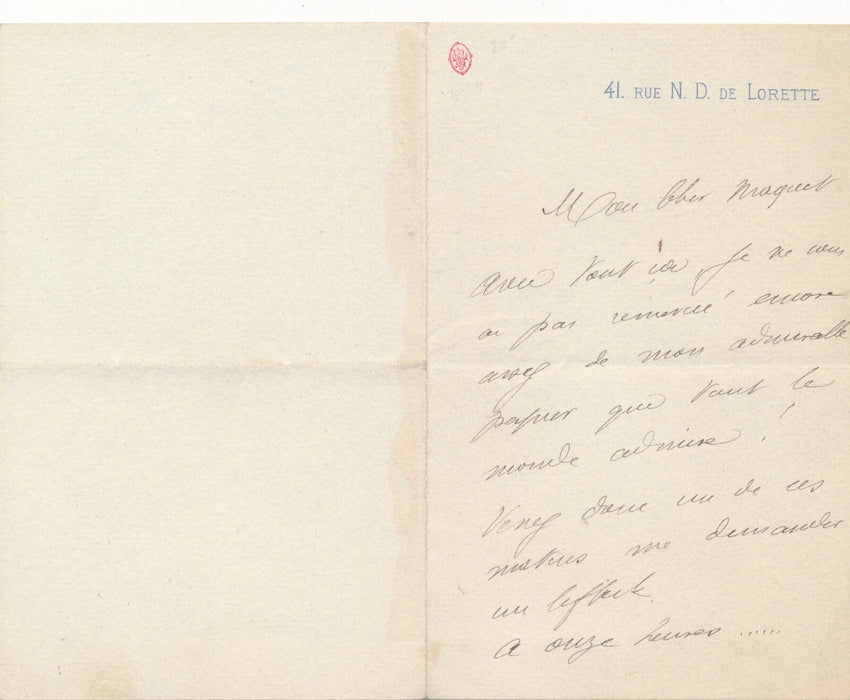 41. RUE N. D. DE LORETTE
Mon Cher Maquet
avec tout ça je ne vous
ai pas remercié encore
assez de mon admirable
papier que tout le
monde admire !
Venez donc un de ces
matins me demander
un bifteck.
A onze heures ......